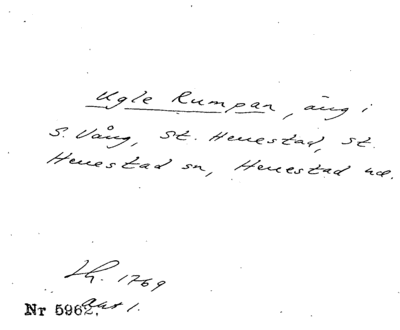 Ugle Rumpan, äng i
S. Vång, St. Herrestad, St.
Herrestad sn, Herrestad hd.
Lh. 1769
Akt 1.
Nr 5962.